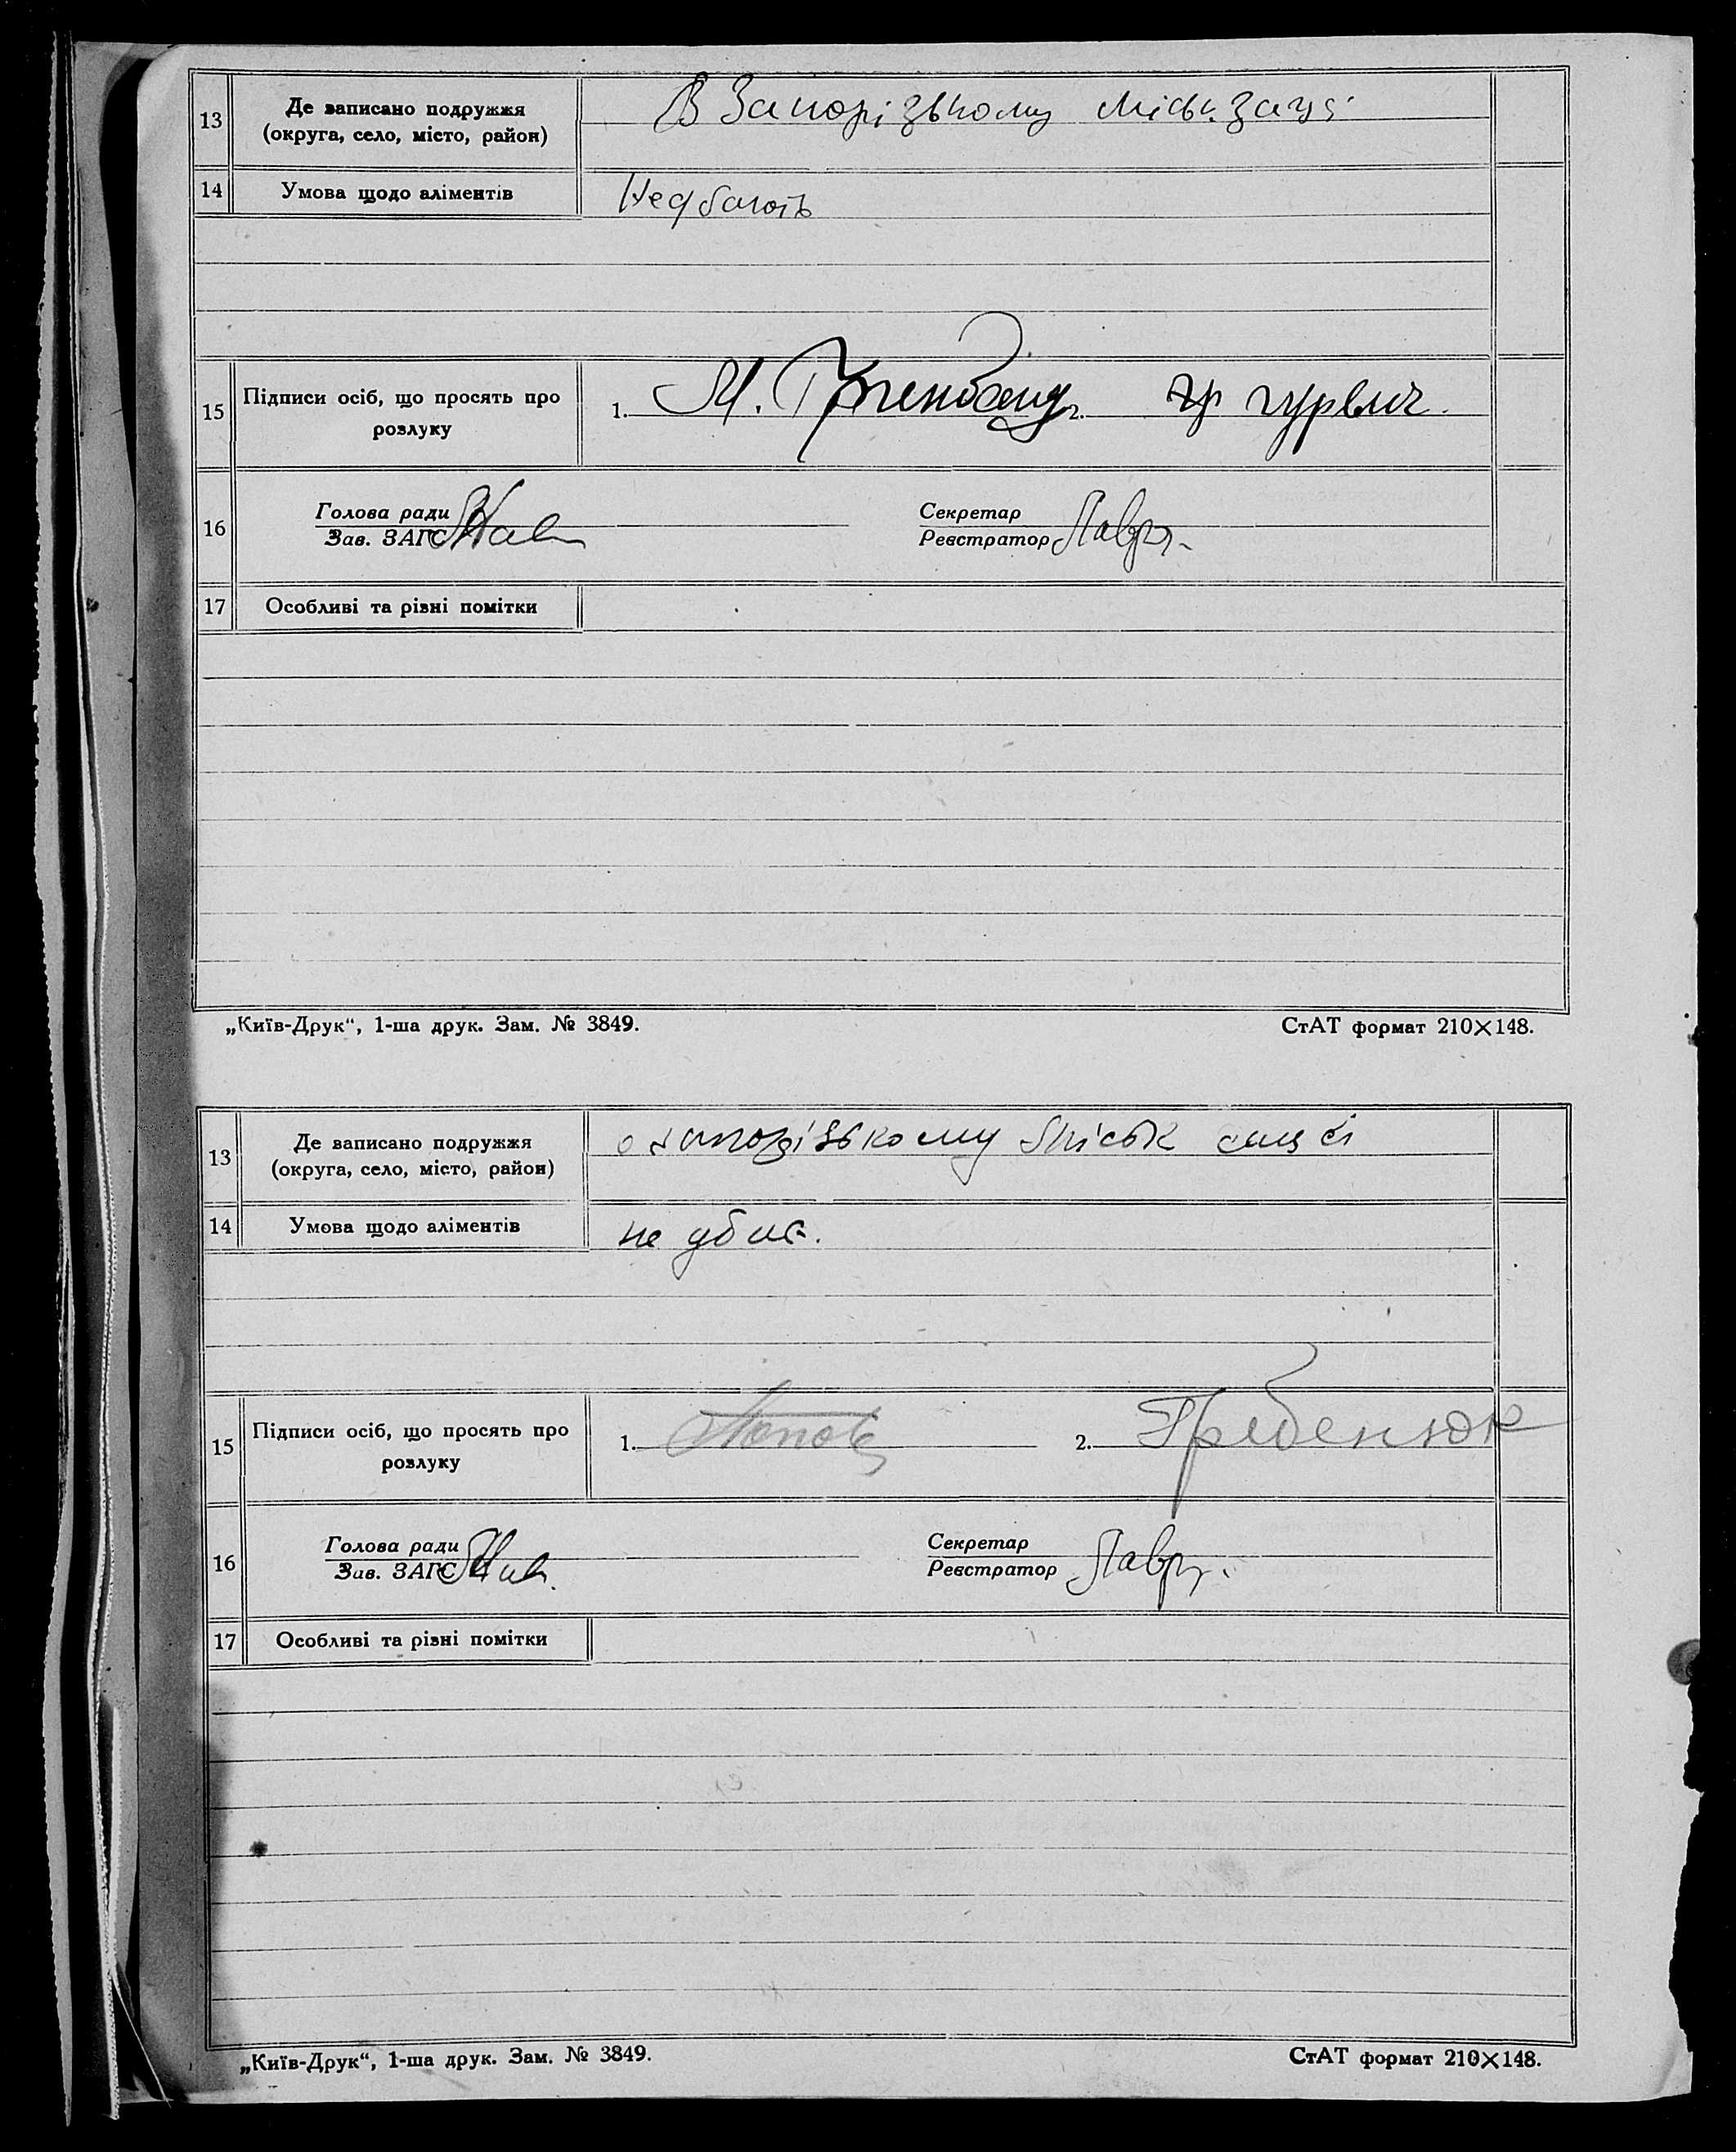 13 Де записано подружжя
(округа, село, місто, район)
В Запорізькому міськ. загсі
14 Умова щодо аліментів
Не дбають
15 Підписи осіб, що просять про
розлуку
1. М. 2. гурвич
16 Голова ради
Зав. ЗАГС
Секретар
Реєстратор Лавр
17 Особливі та різні помітки
„Київ-Друк“, 1-ша друк. Зам. № 3849. СтАТ формат 210×148.
13 Де записано подружжя
(округа, село, місто, район)
Запорізькому міськ
14 Умова щодо аліментів
не
15 Підписи осіб, що просять про
розлуку
1. 2. Гребенюк
16 Голова ради
Зав. ЗАГС
Секретар
Реєстратор Лавр
17 Особливі та різні помітки
„Київ-Друк“, 1-ша друк. Зам. № 3849. СтАТ формат 210×148.